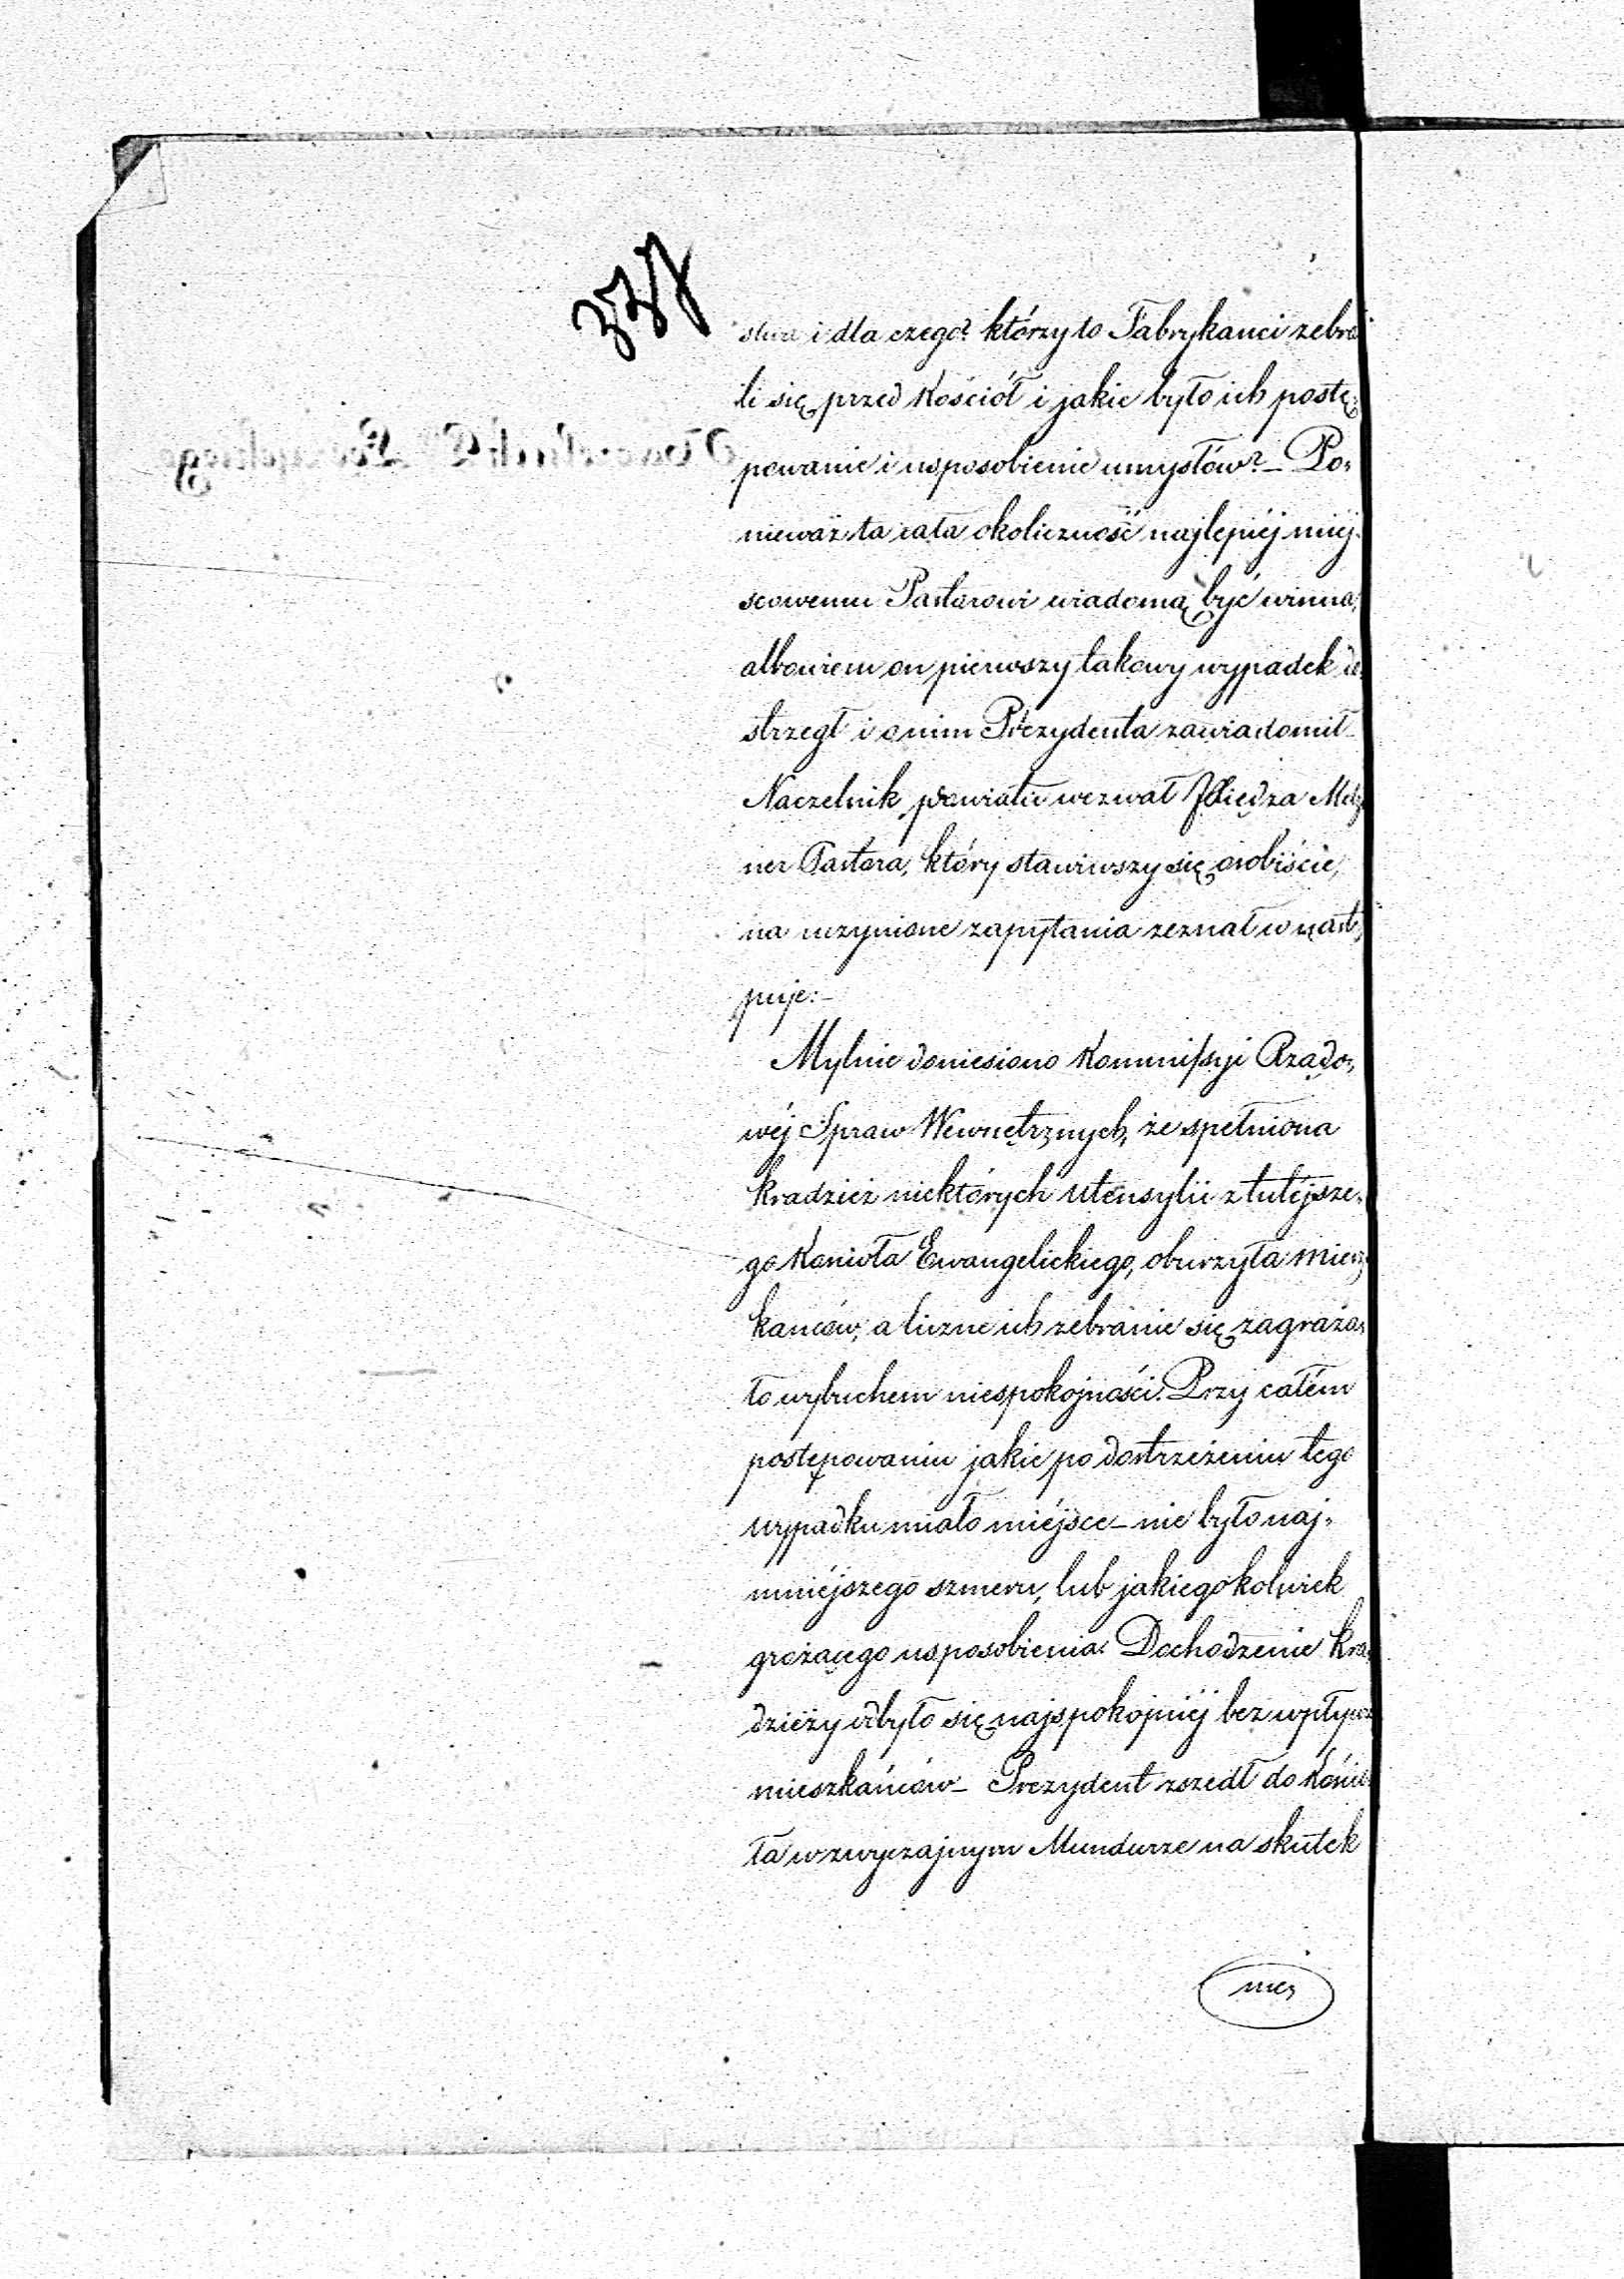 i dla czego? którzy to Fabrykanci zebra
li się przed Kościół i jakie było ich postę,
powanie i usposobienie umysłów? – Po,
nieważ ta cała okoliczność najlepiéj miéj,
scowemu Pastorowi wiadomą być winna,
albowiem on pierwszy takowy wypadek do,
strzegł i o nim Prezydenta zawiadomił –
Naczelnik powiatu wezwał Xiędza Metz
ner Pastora, który stawiwszy się osobiście,
na uczynione zapytania zeznał co nastę,
puje: –
Mylnie doniesiono Kommissyi Rządo,
wéj Spraw Wewnętrznych, że spełniona
kradzież niektórych utensylii z tutéjsze,
go Kościoła Ewangelickiego, oburzyła miesz,
kańców, a liczne ich zebranie się zagraża,
ło wybuchem niespokojności. Przy całém
postępowaniu jakie po dostrzeżeniu tego
wypadku miało miéjsce – nie było naj,
mniéjszego szmeru, lub jakiegokolwiek
grożącego usposobienia. Dochodzenie kra,
dzieży odbyło się najspokojniéj bez wpływu
mieszkańców – Prezydent zszedł do Kościo
ła w zwyczajnym Mundurze na skutek